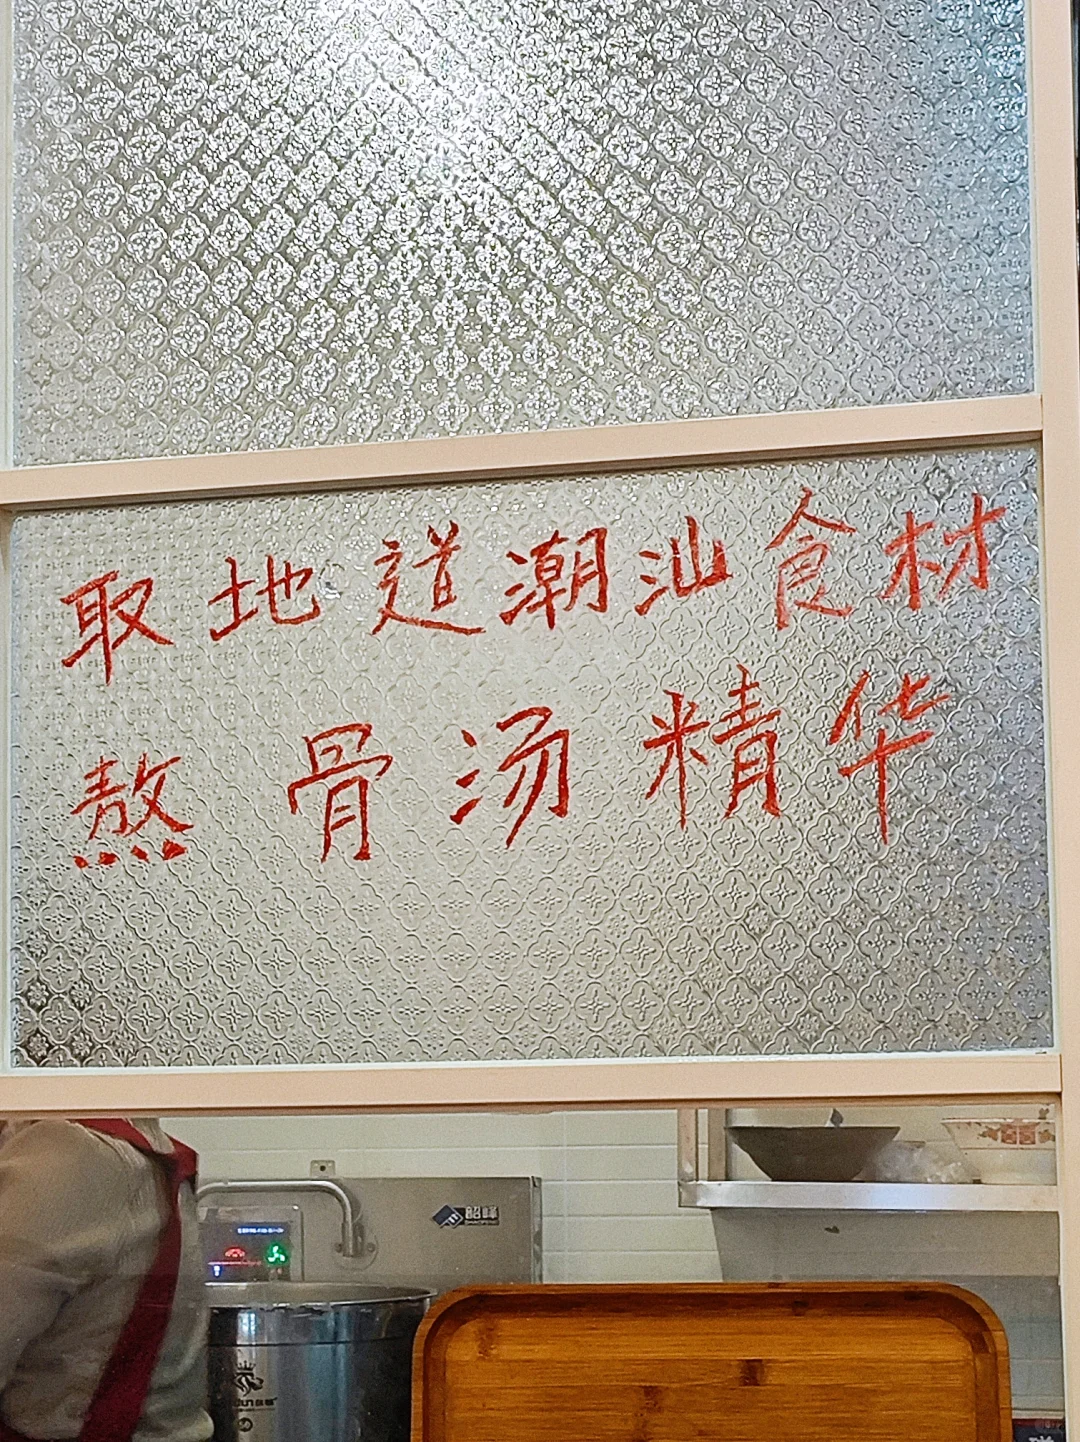 取地道潮汕食材
熬骨汤精华
昭峰